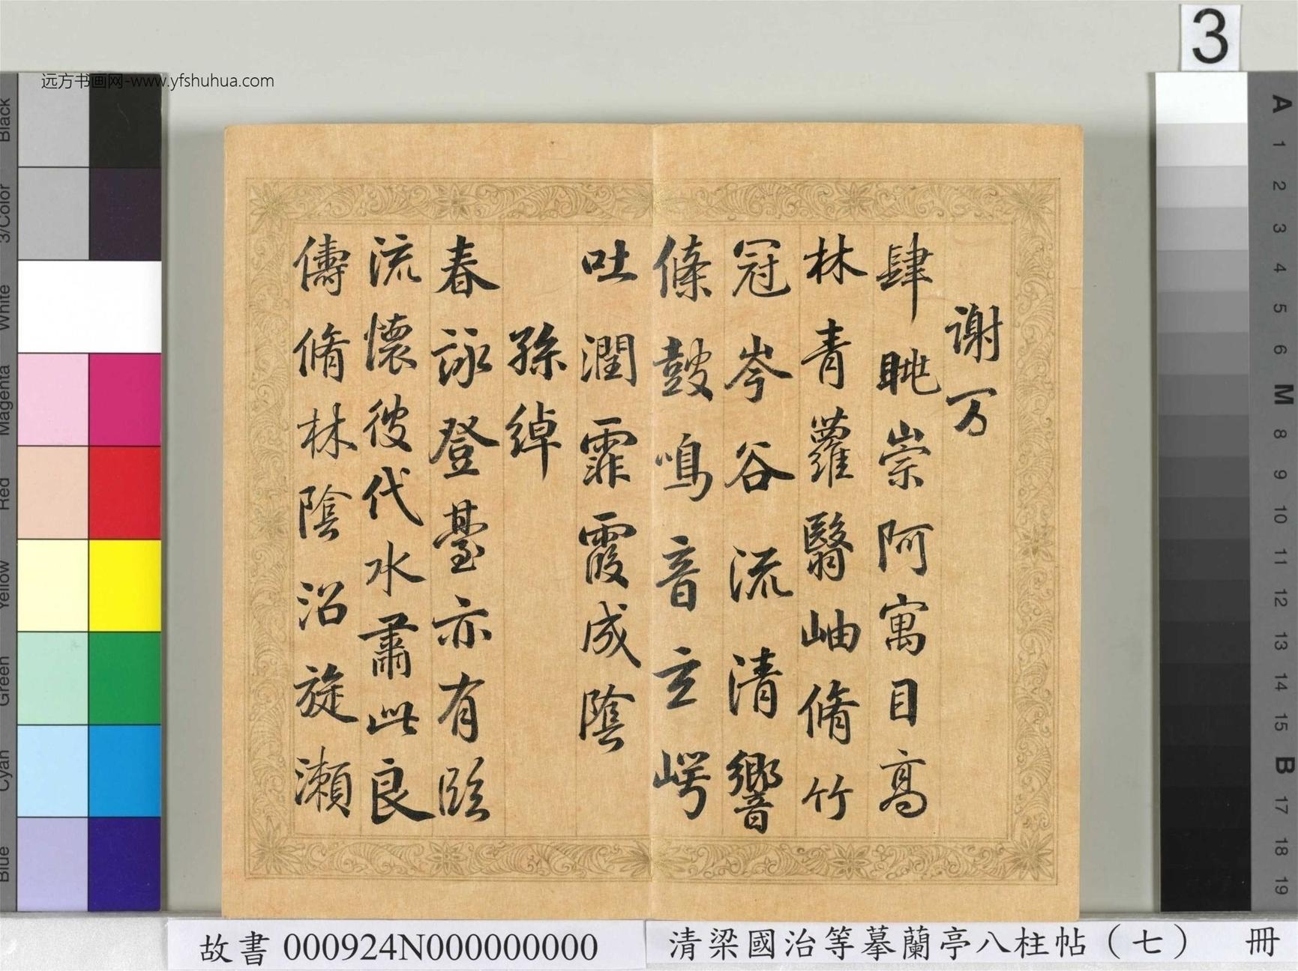 3
远方书画网-www.yfshuhua.com
謝万
肆眺崇阿寓目高
林青蘿翳岫脩竹
冠岑谷流清響
條鼓鳴音玄崿
吐潤霏霞成陰
孫綽
春詠登臺亦有臨
流懷彼伐木肅此良
儔脩林陰沼旋瀨
Black
3/Color
White
Magenta
Red
Yellow
Green
Cyan
Blue
A
1
2
3
4
5
6
M
8
9
10
11
12
13
14
15
B
17
18
19
故書 000924N000000000
清梁國治等摹蘭亭八柱帖（七） 冊